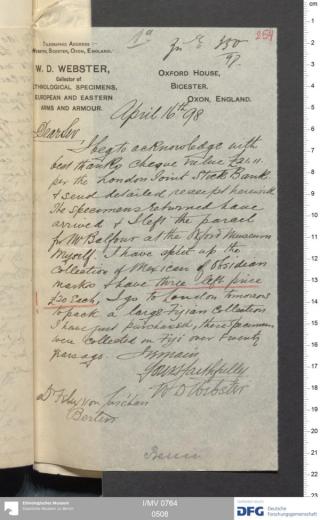 1a
254
zu E 350
97.
TELEGRAPHIC ADDRESS
WEBSTER, BICESTER, OXON, ENGLAND.
W. D. WEBSTER,
Collector of
ETHNOLOGICAL SPECIMENS,
EUROPEAN AND EASTERN
ARMS AND ARMOUR.
OXFORD HOUSE,
BICESTER.
OXON, ENGLAND.
April 16th 98
Dear Sir
I beg to acknowledge with
best thanks cheque value £21.11.
per the London Joint Stock Bank
& send detailed receipt herewith
The Specimens returned have
arrived & I left the parcel
for Mr Balfour at the Oxford Museum
Myself. I have split up the
Collection of Mexican of Obsidian
masks & have three left price
£30 Each, I go to London tomorrow
to pack a large Fijian Collection
I have just purchased, these Specimens
were Collected in Fiji over twenty
years ago. I remain
Yours faithfully
W D Webster
Dr Felix von Luschan
Berlin
I/MV 0764
0508
Ethnologisches Museum
Staatliche Museen zu Berlin
DFG
Deutsche
Forschungsgemeinschaft
cm
1
2
3
4
5
6
7
8
9
10
11
12
13
14
15
16
17
18
19
20
21
22
23